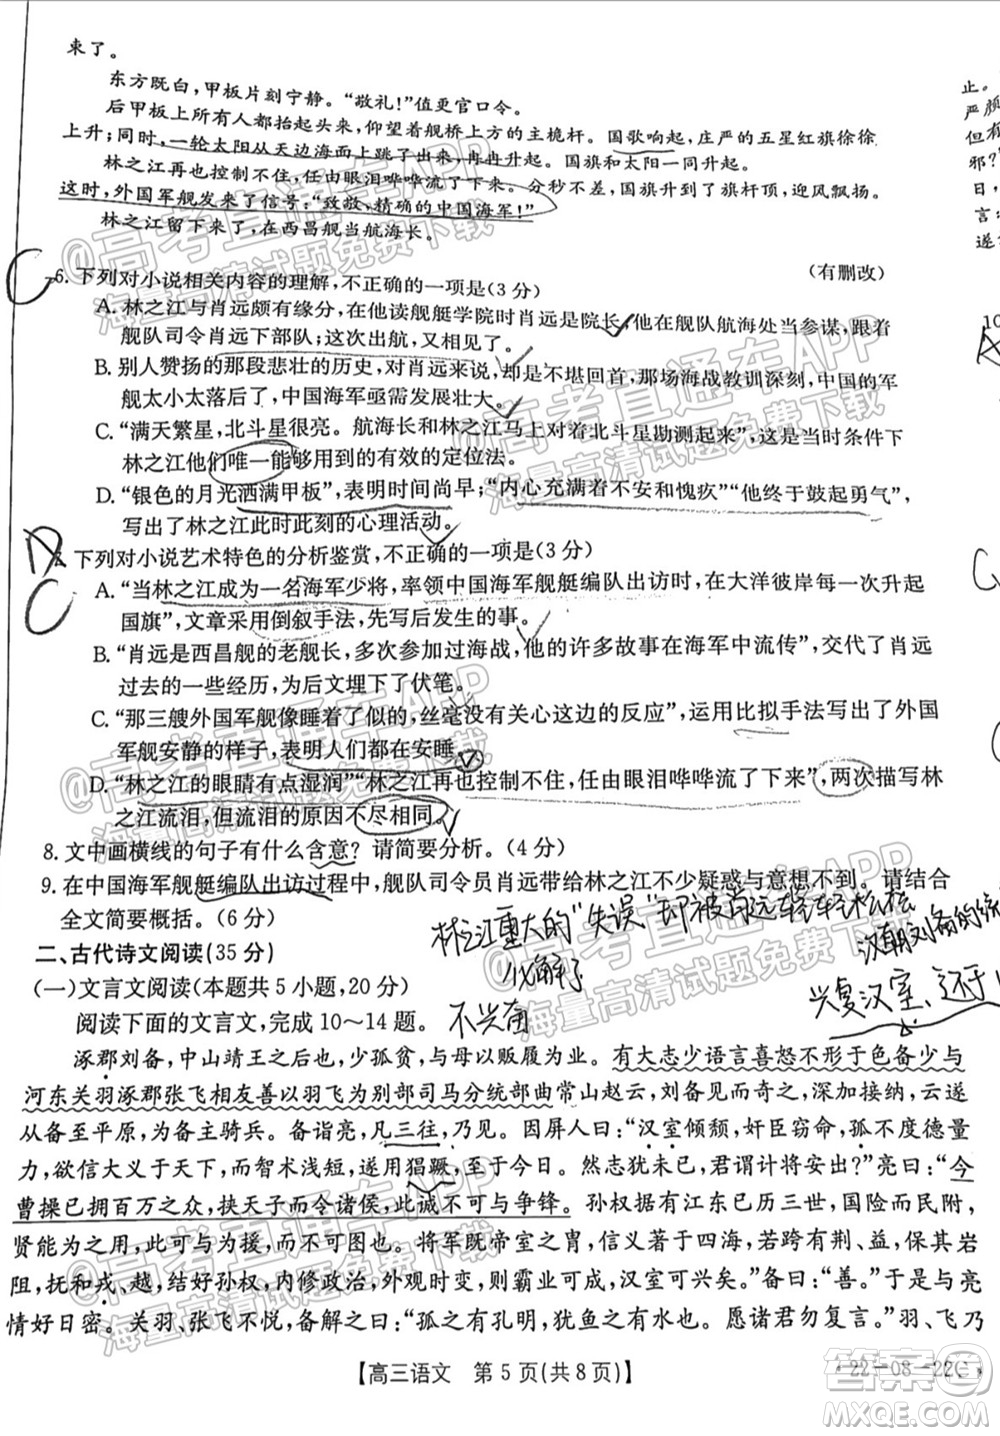 束了。
东方既白，甲板片刻宁静。“敬礼！”值更官口令。
后甲板上所有人都抬起头来，仰望着舰桥上方的主桅杆。国歌响起，庄严的五星红旗徐徐
上升；同时，一轮太阳从天边海面上跳了出来，冉冉升起。国旗和太阳一同升起。
林之江再也控制不住，任由眼泪哗哗流了下来。分秒不差，国旗升到了旗杆顶，迎风飘扬。
这时，外国军舰发来了信号：“致敬，精确的中国海军！”
林之江留了下来，在西昌舰当航海长。
（有删改）
C
6. 下列对小说相关内容的理解，不正确的一项是（3分）
A. 林之江与肖远颇有缘分，在他读舰艇学院时肖远是院长，他在舰队航海处当参谋，就跟着
舰队司令肖远下部队；这次出航，又相见了。
B. 别人赞扬的那段悲壮的历史，对肖远来说，却是不堪回首的。那场海战教训深刻，中国的军
舰太小太落后了，中国海军亟需发展壮大。
C. “满天繁星，北斗星很亮。航海长和林之江马上对着北斗星勘测起来”，这是当时条件下
林之江他们唯一能够用到的有效的定位法。
D. “银色的月光洒满甲板”，表明时间尚早；“内心充满着不安和愧疚”“他终于鼓起勇气”，
写出了林之江此时此刻的心理活动。
C
下列对小说艺术特色的分析鉴赏，不正确的一项是（3分）
A. “当林之江成为一名海军少将，率领中国海军舰艇编队出访时，在大洋彼岸每一次升起
国旗”，文章采用倒叙手法，先写后发生的事。
B. “肖远是西昌舰的老舰长，多次参加过海战，他的许多故事在海军中流传”，交代了肖远
过去的一些经历，为后文埋下了伏笔。
C. “那三艘外国军舰像睡着了似的，丝毫没有关心这边的反应”，用比拟手法写出了外国
军舰安静的样子，表明人们都在安睡。
D. “林之江的眼睛有点湿润”“林之江再也控制不住，任由眼泪哗哗流了下来”，两次描写林
之江流泪，但流泪的原因不尽相同。
8. 文中画横线的句子有什么含意？请简要分析。（4分）
9. 在中国海军舰艇编队出访过程中，舰队司令员肖远带给林之江不少疑惑与意想不到。请结合
全文简要概括。（6分）
林之江重大的“失误”却被肖远轻轻松松
化解了
二、古代诗文阅读（35分）
（一）文言文阅读（本题共5小题，20分）
兴复汉室、还于
阅读下面的文言文，完成10～14题。
涿郡刘备，中山靖王之后也，少孤贫，与母以贩履为业。有大志少语言喜怒不形于色备少与
河东关羽涿郡张飞相友善以羽飞为别部司马分统部曲常山赵云，刘备见而奇之，深加接纳，云遂
从备至平原，为备主骑兵。备诣亮，凡三往，乃见。因屏人曰：“汉室倾颓，奸臣窃命，孤不度德量
力，欲信大义于天下，而智术浅短，遂用猖蹶，至于今日。然志犹未已，君谓计将安出？”亮曰：“今
曹操已拥百万之众，挟天子而令诸侯，此诚不可与争锋。孙权据有江东已历三世，国险而民附，
贤能为之用，此可与为援，而不可图也。将军既帝室之胄，信义著于四海，若跨有荆、益，保其岩
阻，抚和戎、越，结好孙权，内修政治，外观时变，则霸业可成，汉室可兴矣。”备曰：“善。”于是与亮
情好日密。关羽、张飞不悦，备解之曰：“孤之有孔明，犹鱼之有水也。愿诸君勿复言。”羽、飞乃
【高三语文 第5页（共8页）】
22－08－22C
止。
严颜
但有
邪？”
日，
言：
遂
10
@高考直通车APP
海量高清试题免费下载
@高考直通车APP
海量高清试题免费下载
@高考直通车APP
海量高清试题免费下载
@高考直通车APP
海量高清试题免费下载
@高考直通车APP
海量高清试题免费下载
答案圈
MXQE.COM